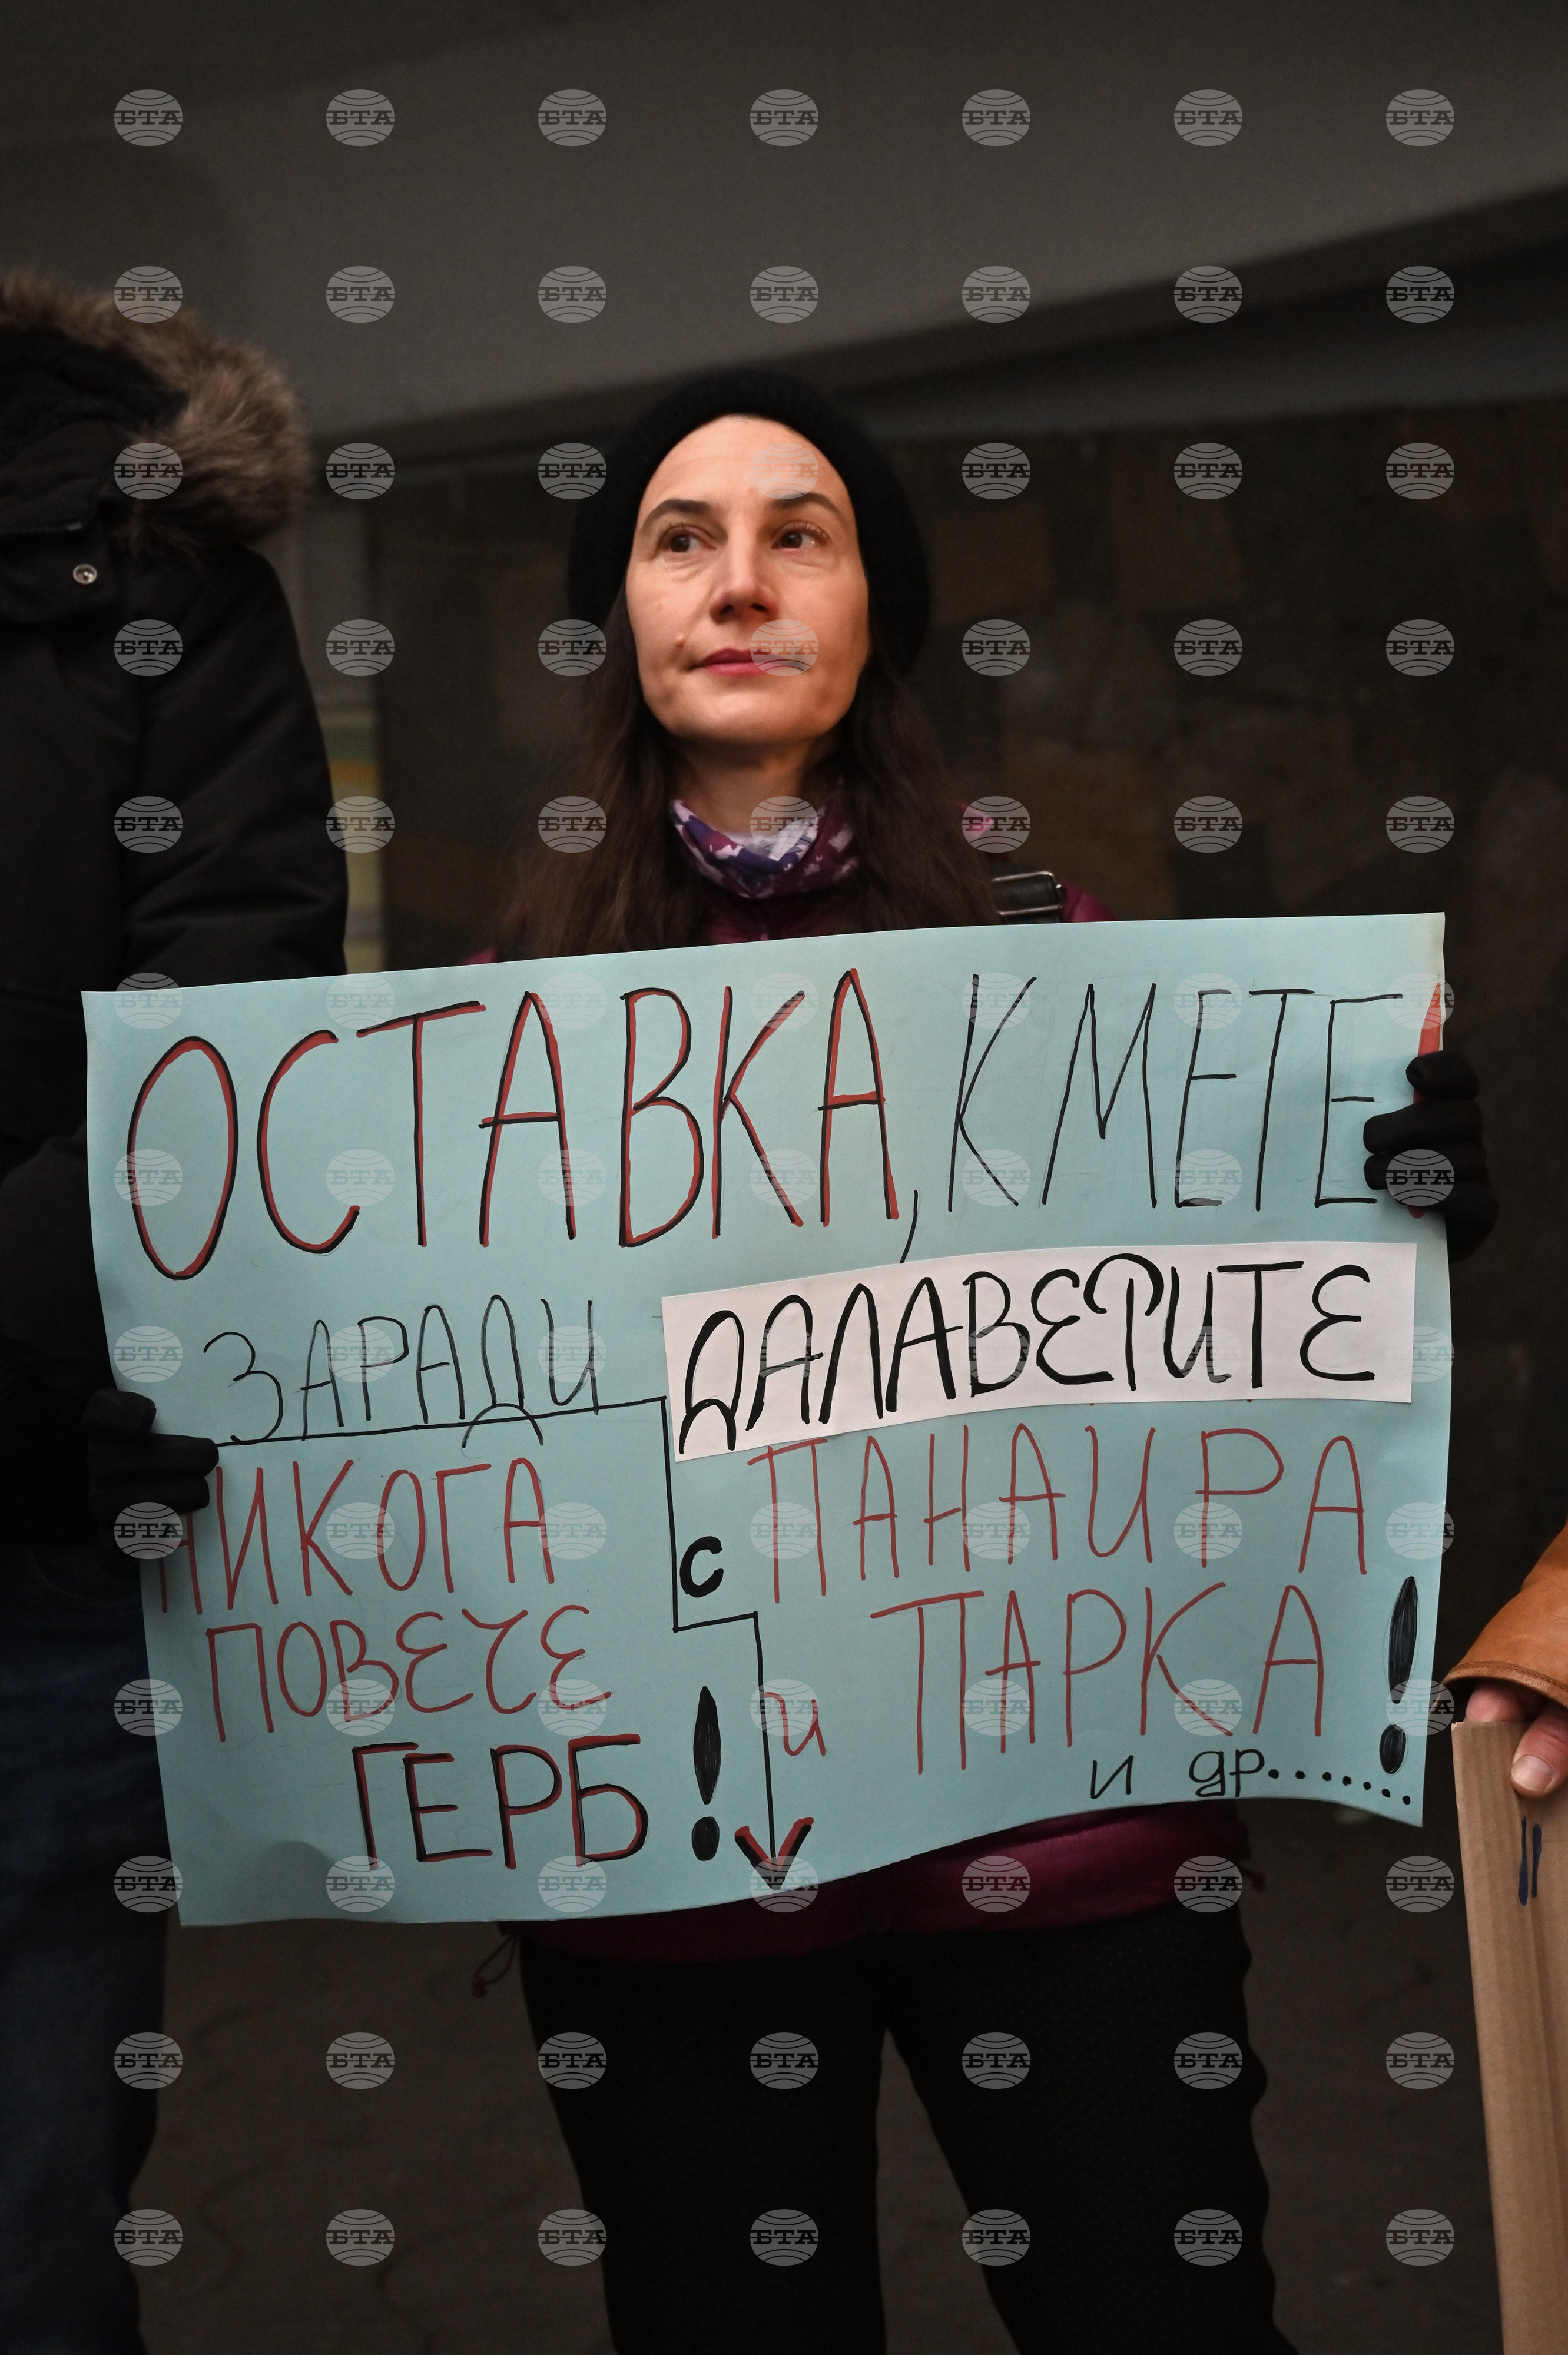 ОСТАВКА, КМЕТЕ!
ЗАРАДИ ДАЛАВЕРИТЕ
с ПАНАИРА
и ПАРКА!
и др.......
НИКОГА
ПОВЕЧЕ
ГЕРБ!
БТА